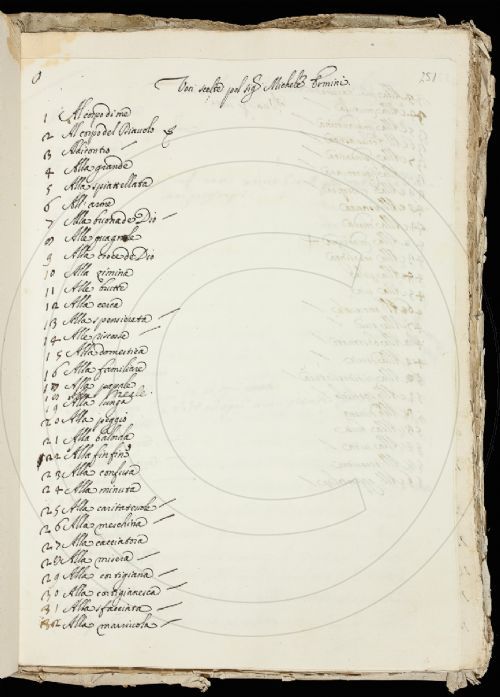 251
Voci scelte pel sig.r Michele Ermini
1 Al corpo di me
2 Al corpo del Diavolo
3
4 Alla grande
5 Alla spiattellata
6 All' arme
7 Alla buona de Dio
8 Alle guagnele
9 Alla croce de Dio
10 Alla
11 Alle butte
12 Alla cieca
13 Alla spensierata
14 Alle riscosse
15 Alla domestica
16 Alla familiare
17 Alla papale
18 Alla
19 Alla lunga
20 Alla peggio
21 Alla balorda
22 Alla fin fine
23 Alla confusa
24 Alla minuta
25 Alla caritatevole
26 Alla meschina
27 Alla cacciatora
28 Alla misera
29 Alla cortigiana
30 Alla cortigianesca
31 Alla sfacciata
32 Alla